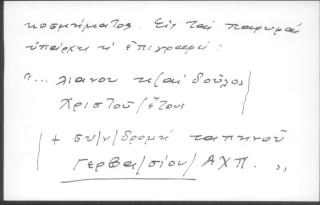 κοσμήματος. Εἰς τὰς παρυφὰς
ὑπάρχει ἡ ἐπιγραφή:
"... λιανου κ(αὶ δοῦλος
Χριστοῦ/ἔτους
+ συ/ν/δρομὴ ταπεινοῦ
Γερβα/σίου/ΑΧΠ. "